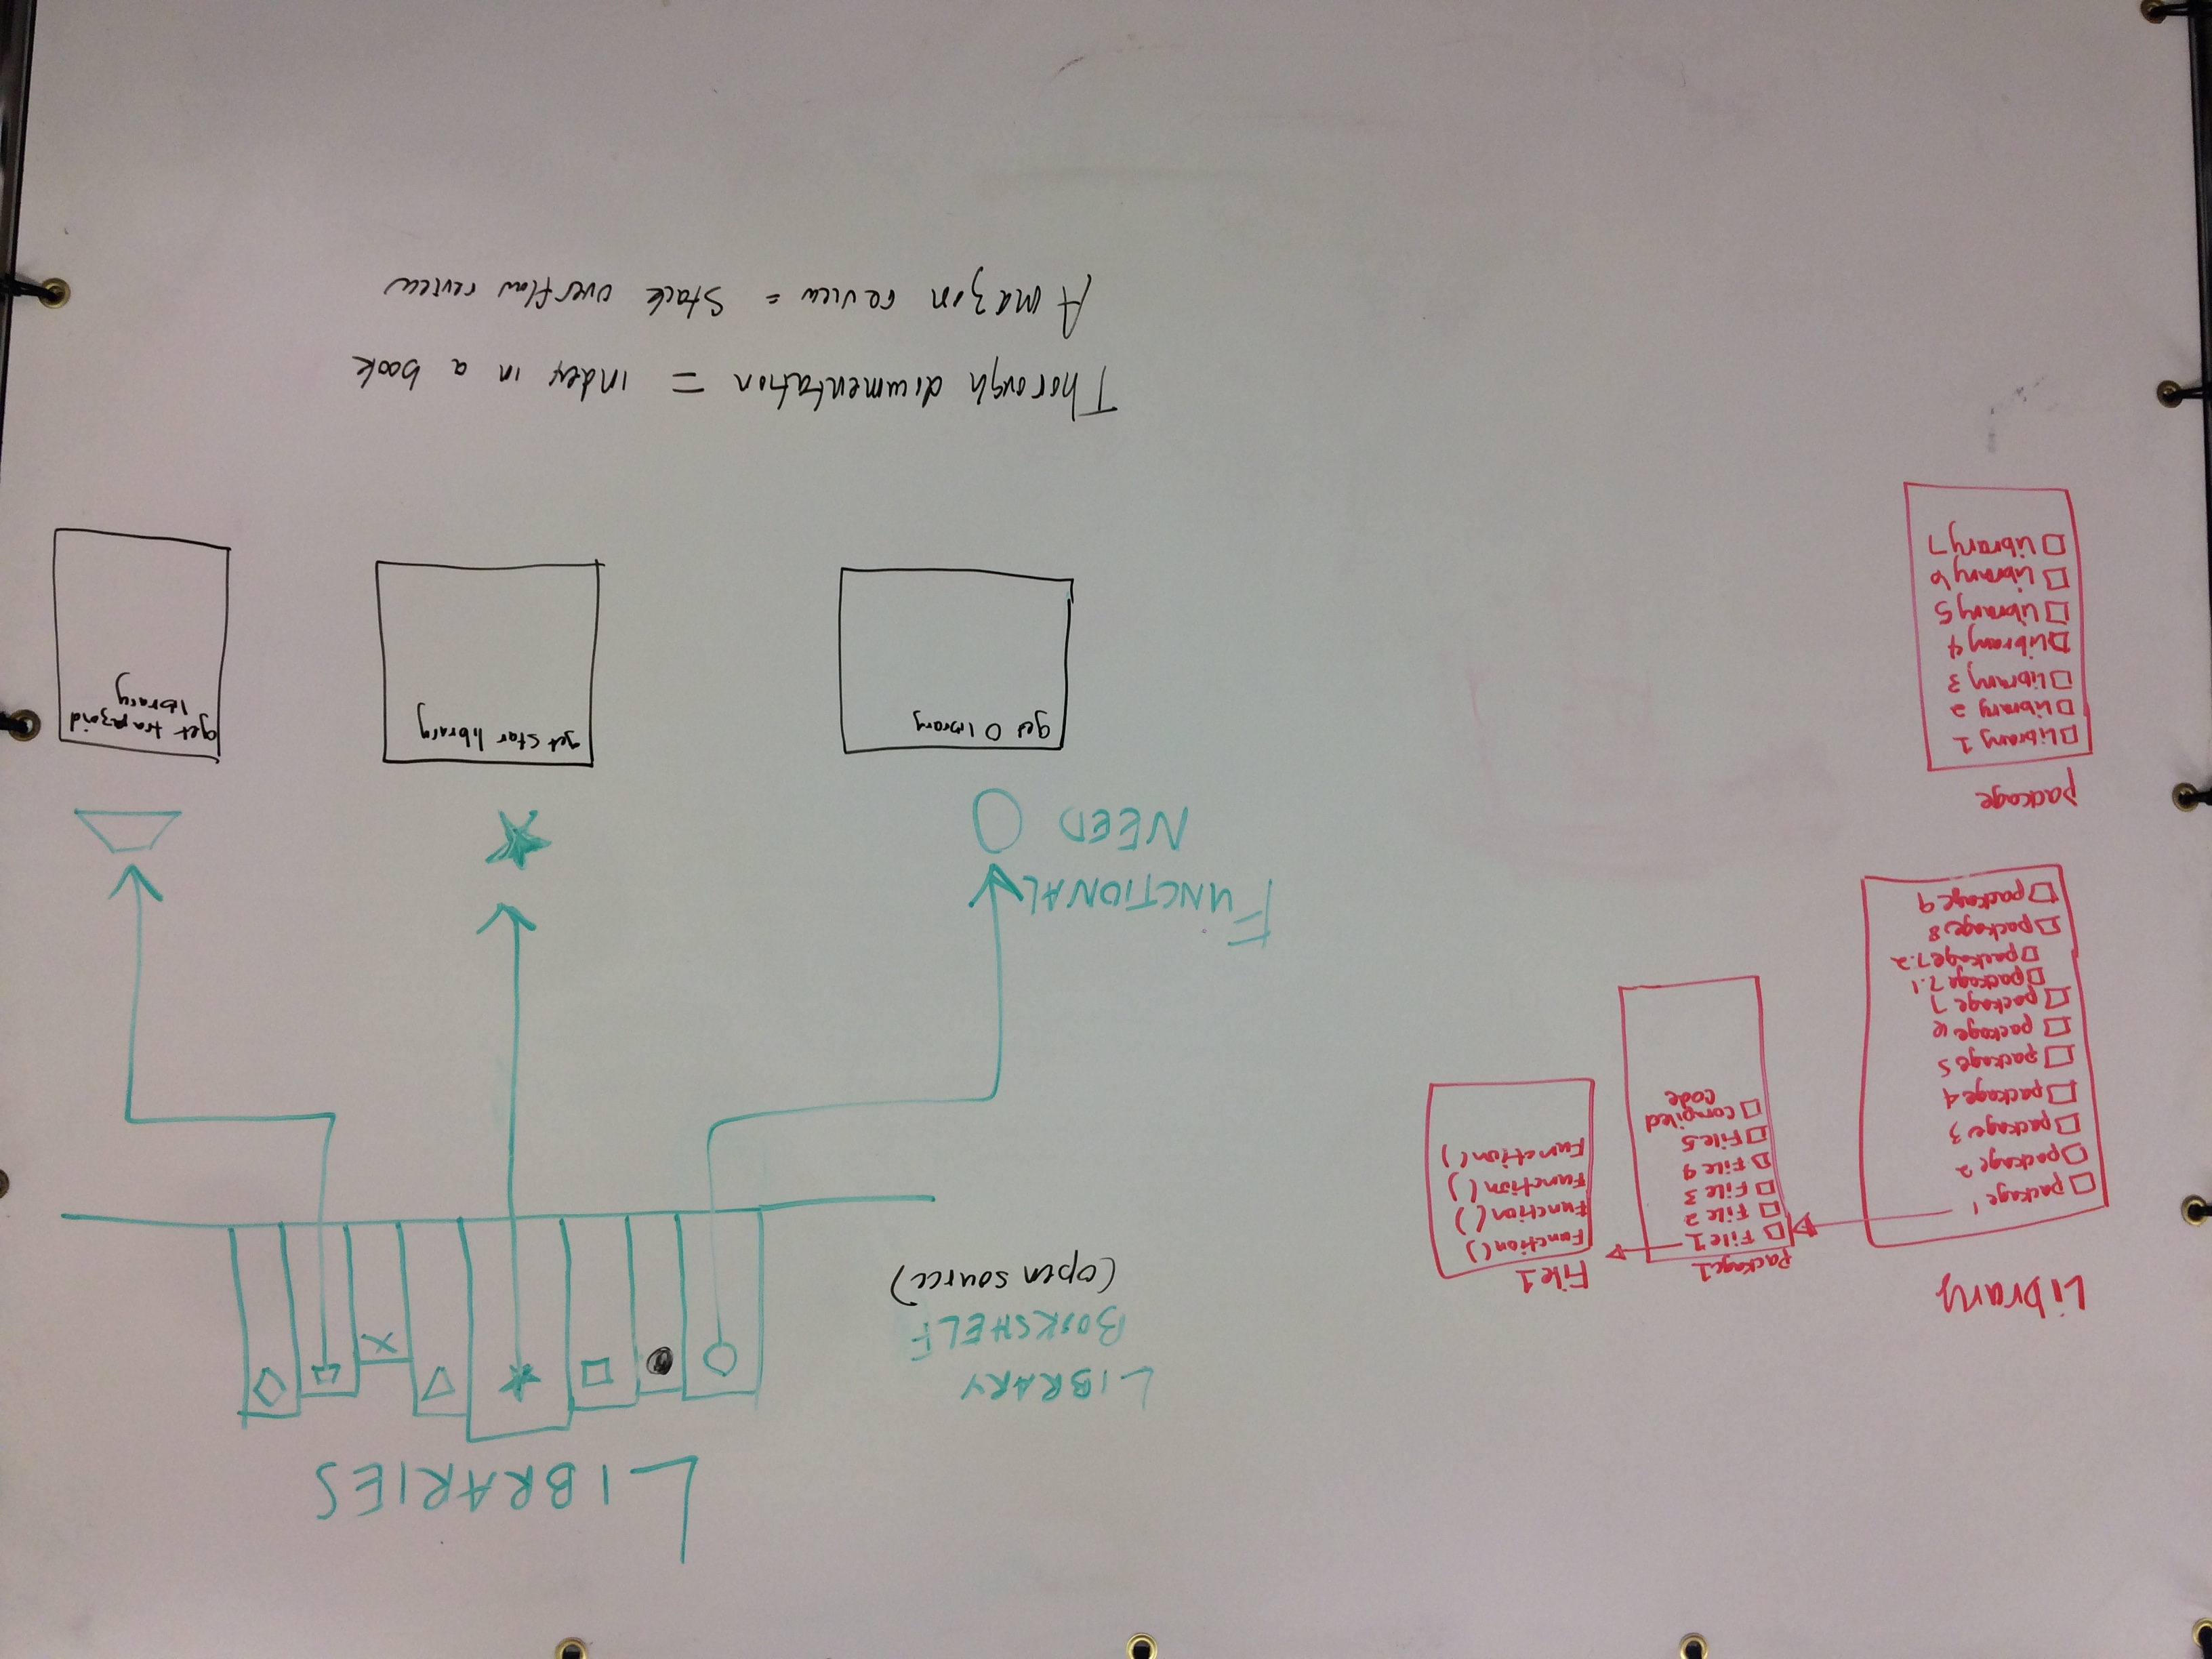 Library
package 1
package 2
package 3
package 4
package 5
package 6
package 7
package 7.1
package 7.2
package 8
package 9
package1
File 1
File 2
File 3
File 4
File 5
Compiled
Code
File 1
Function()
Function()
Function()
Function()
package
Library 1
Library 2
Library 3
Library 4
Library 5
Library 6
Library 7
LIBRARIES
LIBRARY
BOOKSHELF
(open source)
FUNCTIONAL
NEED
get O library
get star library
get trapzoid
library
Thorough documentation = index in a book
Amazon review = Stack overflow review